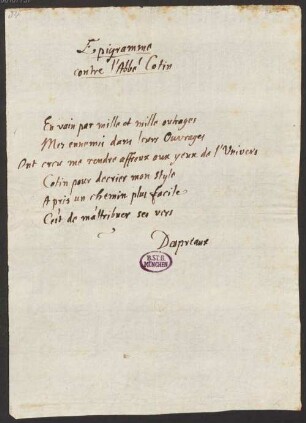 Epigramme
contre l'Abbé Cotin
En vain par mille et mille outrages
Mes ennemis dans leurs Ouvrages
Ont cru me rendre affreux aux yeux de l'Univers
Cotin pour decrier mon style
A pris un chemin plus facile
C'est de m'attribuer ses vers
Despreaux
B.ST.B.
MÜNCHEN